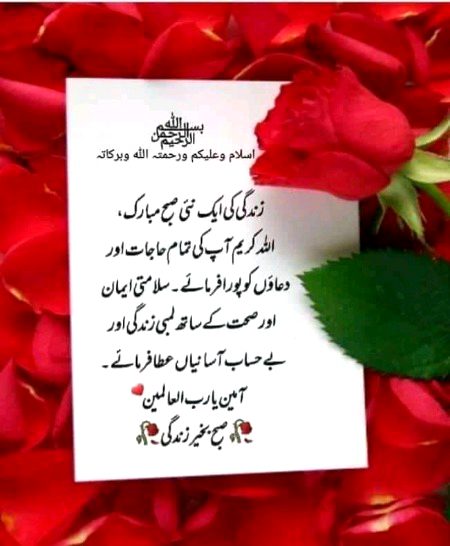 بسم الله الرحمن الرحيم
اسلام وعلیکم ورحمتہ اللہ وبرکاتہ
زندگی کی ایک نئی صبح مبارک،
اللہ کریم آپ کی تمام حاجات اور
دعاؤں کو پورا فرمائے۔ سلامتی ایمان
اور صحت کے ساتھ لمبی زندگی اور
بے حساب آسانیاں عطا فرمائے۔
آمین یا رب العالمین❤️
🥀صبح بخیر زندگی🥀